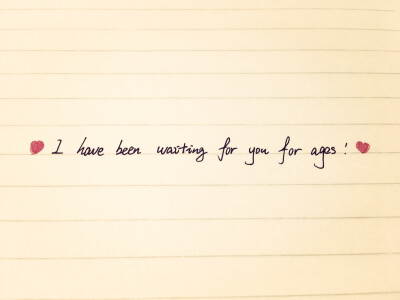 I have been waiting for you for ages!